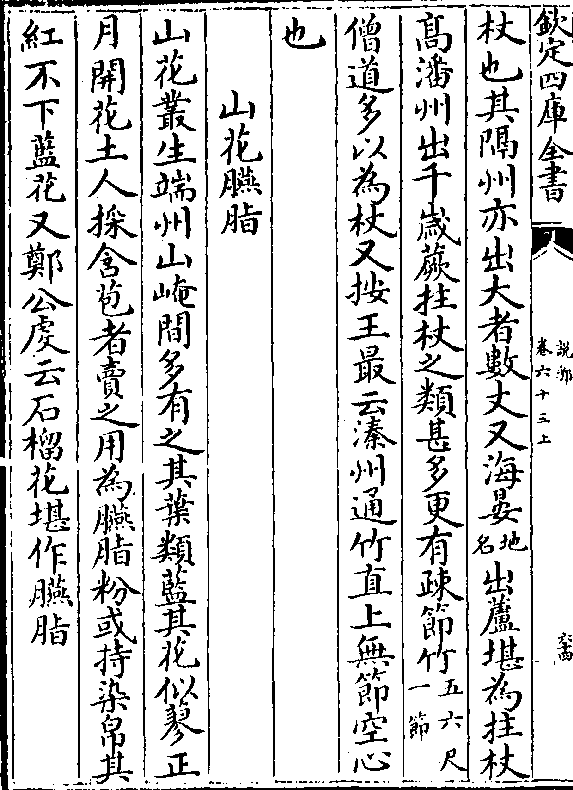 欽定四庫全書
說郛
卷六十三上
杖也其隔州亦出大者數丈又海晏地名出蘆堪為拄杖
高潘州出千歲蕨拄杖之類甚多更有疎節竹五六尺一節
僧道多以為杖又按王最云溱州通竹直上無節空心
也
山花臙脂
山花叢生端州山崦間多有之其葉類藍其花似蓼正
月開花土人採含苞者賣之用為臙脂粉或持染帛其
紅不下藍花又鄭公虔云石榴花堪作臙脂